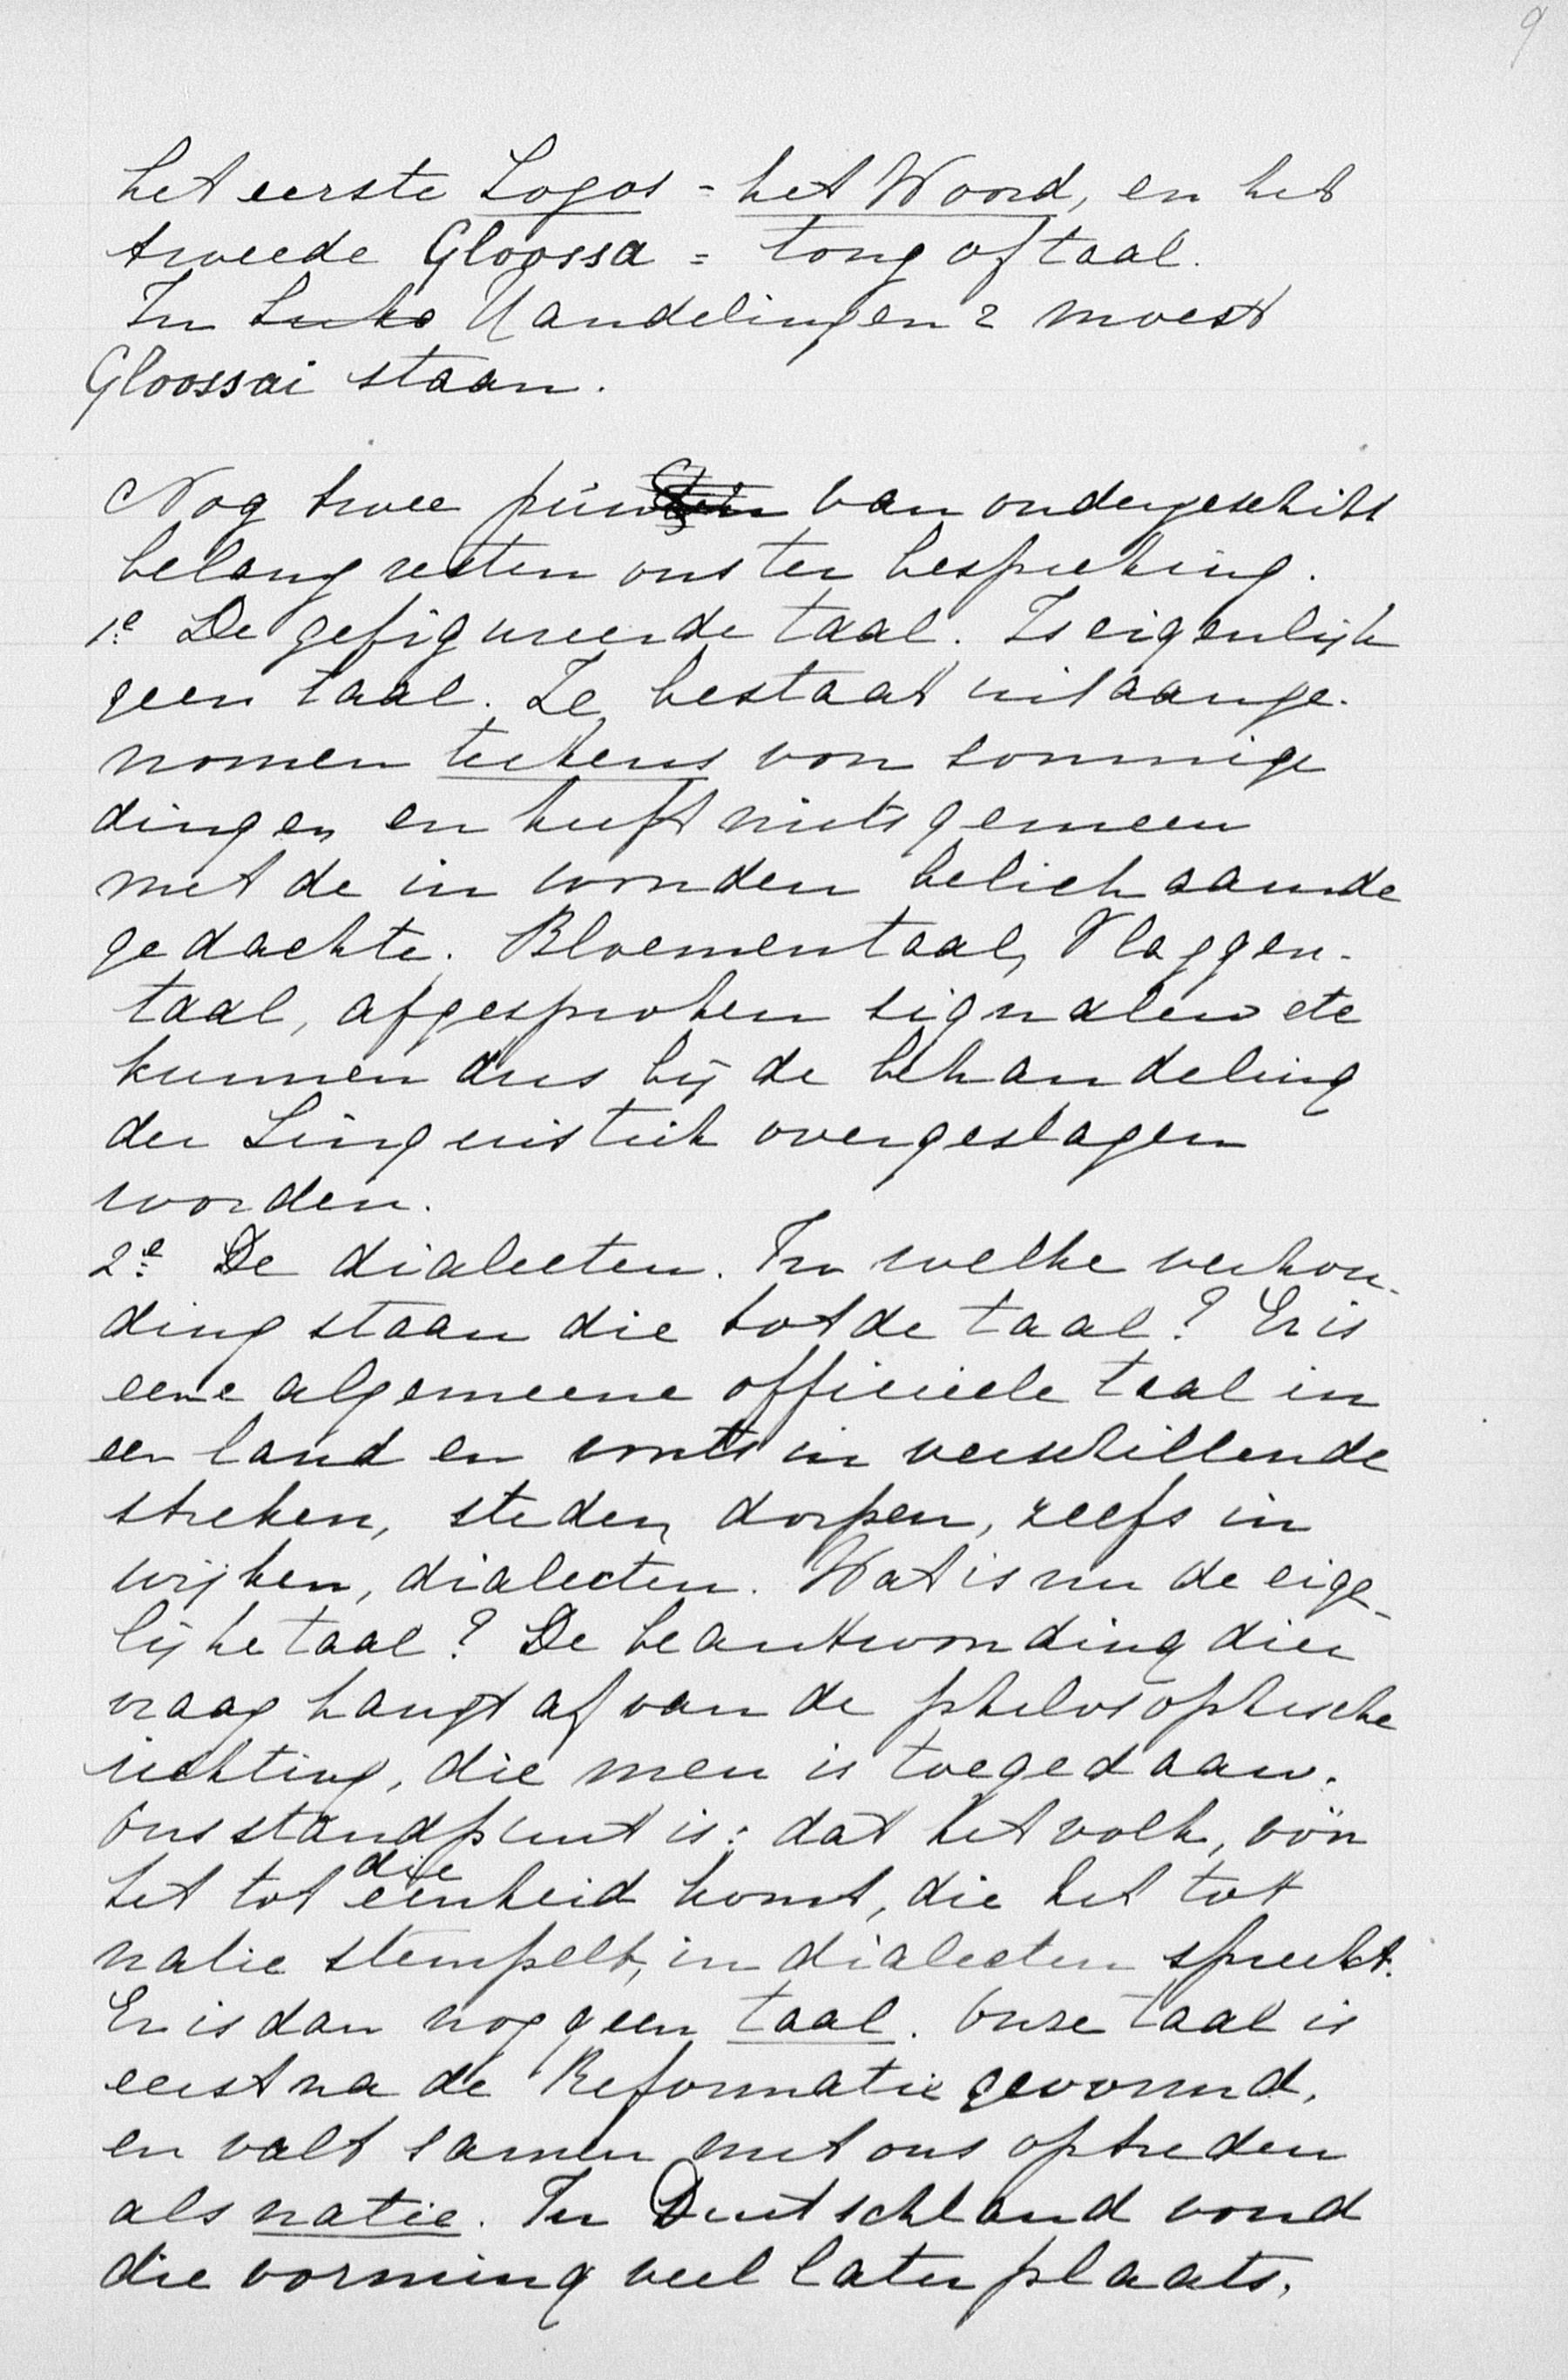 9
het eerste Logos = het Woord, en het
tweede Gloossa = tong of taal.
In Luka Handelingen 2 moest
Gloossai staan.
Nog twee punten van ondergeschikt
belang resten ons ter bespreking.
1e De gefigureerde taal. Is eigenlijk
geen taal. Ze bestaat uit aange-
nomen teekens von sommige
dingen en heeft niets gemeen
met de in woorden belichaamde
gedachte. Bloementaal, Vlaggen-
taal, afgesproken signalen etc
kunnen dus bij de behandeling
der Linguistiek overgeslagen
worden.
2e De dialecten. In welke verhou-
ding staan die tot de taal? Er is
eene algemeene officieele taal in
een land en voorts in verschillende
streken, steden, dorpen, zelfs in
wijken, dialecten. Wat is nu de eige-
lijke taal? De beantwoording dier
vraag hangt af van de philosophische
richting, die men is toegedaan.
Ons standpunt is: dat het volk, vóór
het tot die eenheid komt, die het tot
natie stempelt, in dialecten spreekt.
Er is dan nog geen taal. Onze taal is
eerst na de Reformatie gevormd,
en valt samen met ons optreden
als natie. In Duitschland vond
die vorming veel later plaats,